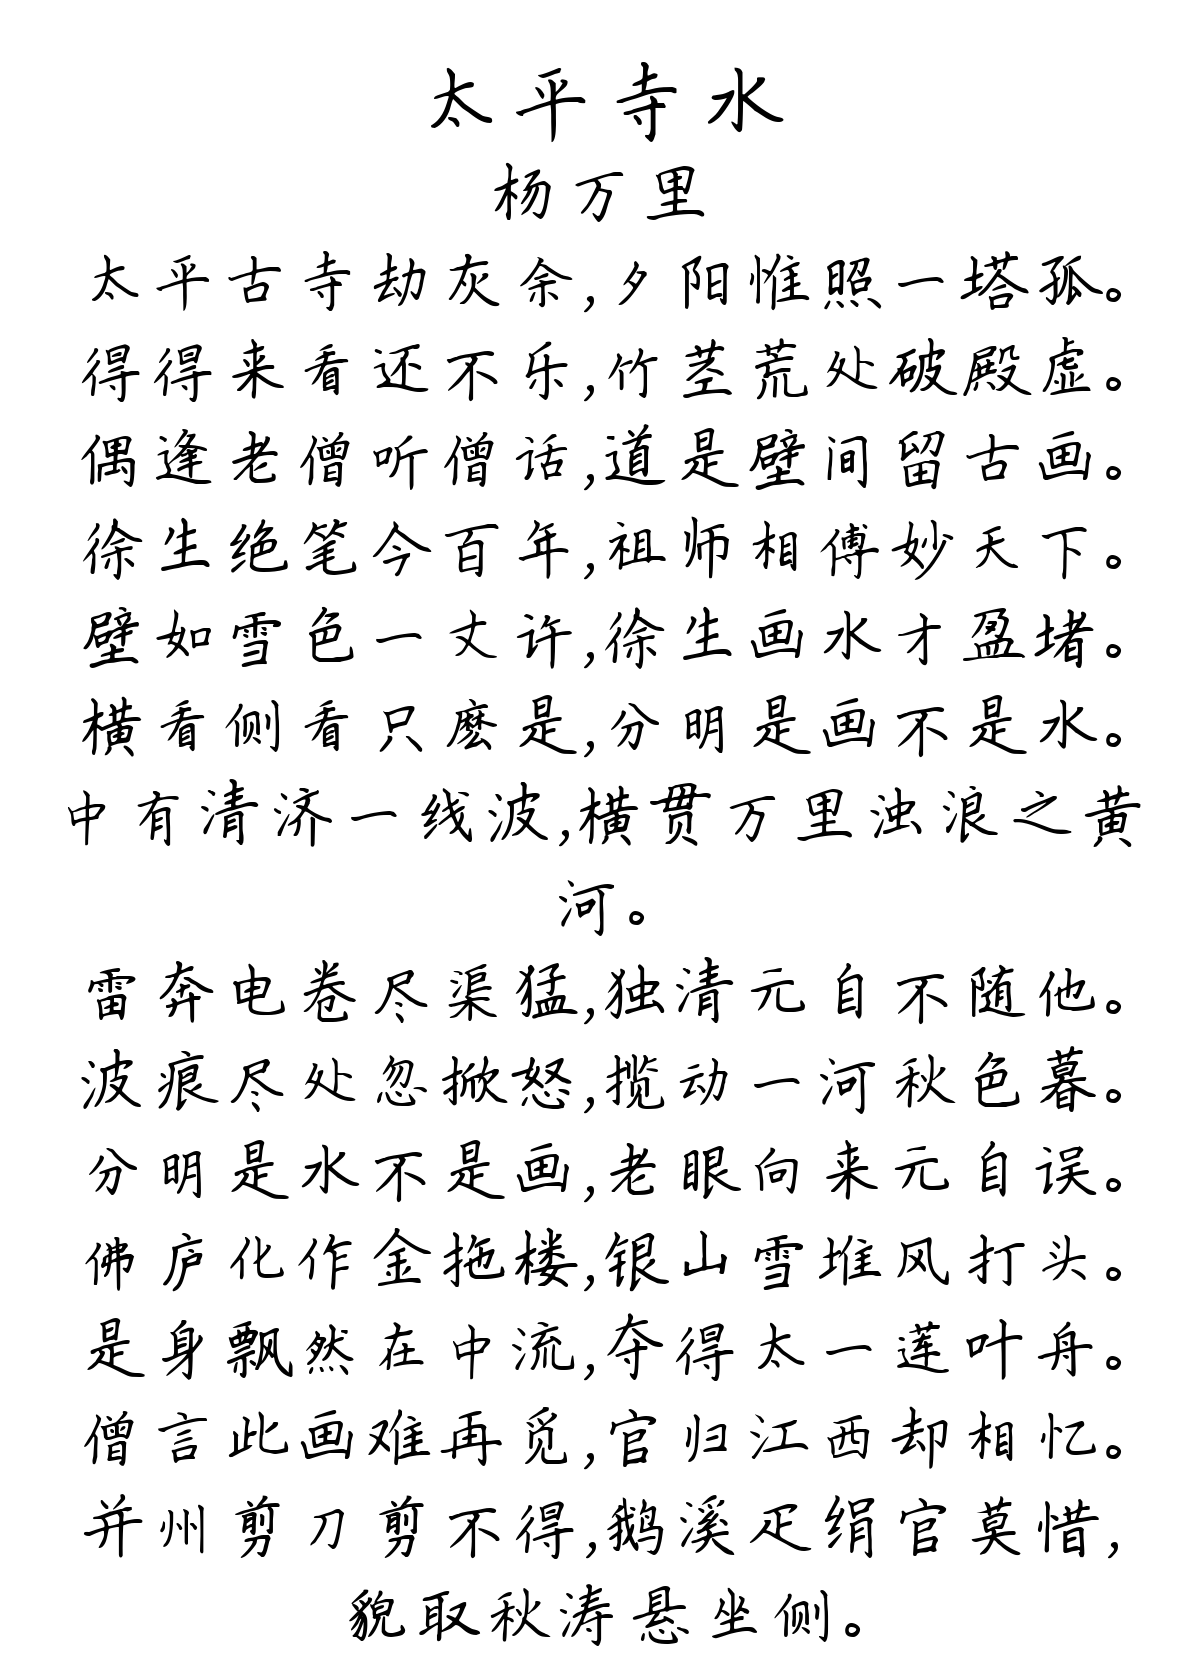 太平寺水
杨万里
太平古寺劫灰余,夕阳惟照一塔孤。
得得来看还不乐,竹茎荒处破殿虚。
偶逢老僧听僧话,道是壁间留古画。
徐生绝笔今百年,祖师相傅妙天下。
壁如雪色一丈许,徐生画水才盈堵。
横看侧看只麽是,分明是画不是水。
中有清济一线波,横贯万里浊浪之黄
河。
雷奔电卷尽渠猛,独清元自不随他。
波痕尽处忽掀怒,搅动一河秋色暮。
分明是水不是画,老眼向来元自误。
佛庐化作金拖楼,银山雪堆风打头。
是身飘然在中流,夺得太一莲叶舟。
僧言此画难再觅,官归江西却相忆。
并州剪刀剪不得,鹅溪疋绢官莫惜,
貌取秋涛悬坐侧。